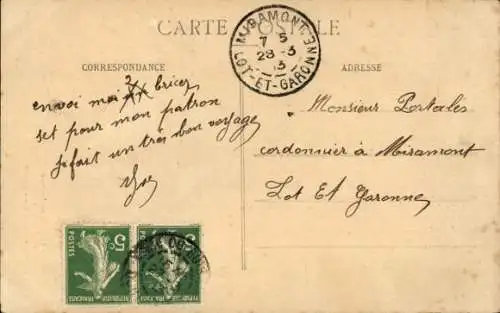 CARTE POSTALE
MIRAMONT
7 5
28-3
13
LOT-ET-GARONNE
CORRESPONDANCE
ADRESSE
envoi moi 2
set pour mon patron
je fait un très bon voyage
Monsieur Portalès
cordonnier à Miramont
Lot Et Garonne
5c 5c
POSTES
REPUBLIQUE FRANÇAISE REPUBLIQUE FRANÇAISE